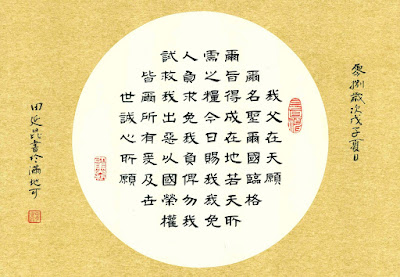 零捌歲次戊子夏日
我父在天願
爾名聖爾國臨格
爾旨得成在地若天所
需之糧今日賜我我免
人負求免我負俾勿我
試救我出惡以國榮權
皆爾所有爰及世
世誠心所願
田延書於滿地可